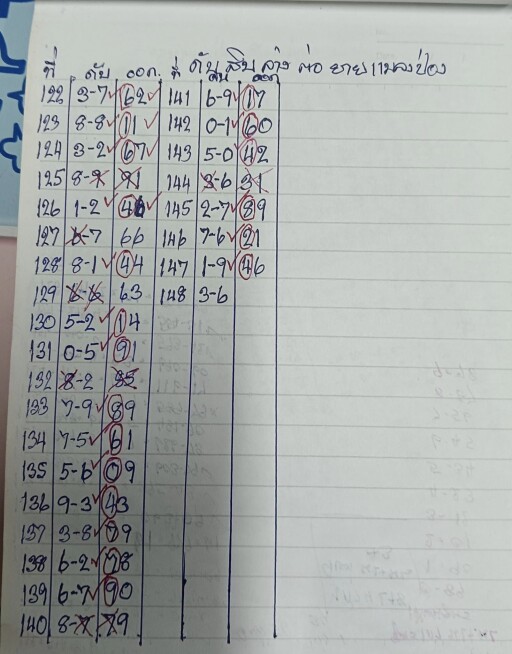 ดับ สิบ ล่าง ต่อ ยาย แมลงป่อง
ที่ ดับ ออก. ที่ ดับ ออก
122 3-7 62 141 6-9 17
123 8-8 11 142 0-1 60
124 3-2 67 143 5-0 42
125 8-9 91 144 3-6 31
126 1-2 46 145 2-7 89
127 6-7 66 146 7-6 21
128 8-1 44 147 1-9 46
129 6-6 63 148 3-6
130 5-2 14
131 0-5 91
132 8-2 85
133 7-9 89
134 7-5 61
135 5-6 09
136 9-3 43
137 3-8 79
138 6-2 78
139 6-7 90
140 8-7 79